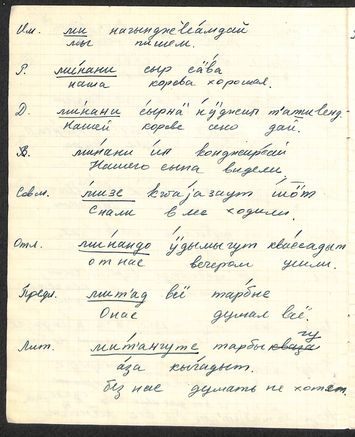 Им. ми нагындже́ва́мдай
мы пишем.
Р. ми́нани сыр са̄ва
наша корова хорошая.
Д. ми́нани сырнӓ нӱджеп татменд-
Нашей корове сено дай.
В. ми́нани ин конджирса̄й
Нашего сына видели,
Совм. мизе jазаут шӧт
С нами в лес ходили.
Отл. ми́нандо ӱдымыгут ква́ссадыт
от нас вечером ушли.
Предл. митад всё тарбне
О нас думал всё.
Лит. ми́тангуте тарбыквагу
а́за кыга́дыт.
без нас думать не хотят.